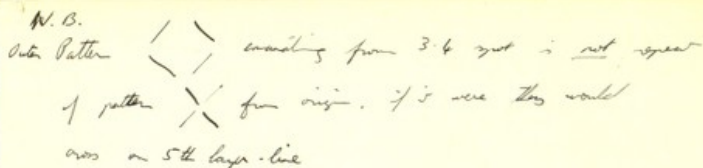 N.B.
Outer Pattern emanating from 3.4 spot is not repeat
of pattern from origin, if it were they would
cross on 5th layer-line